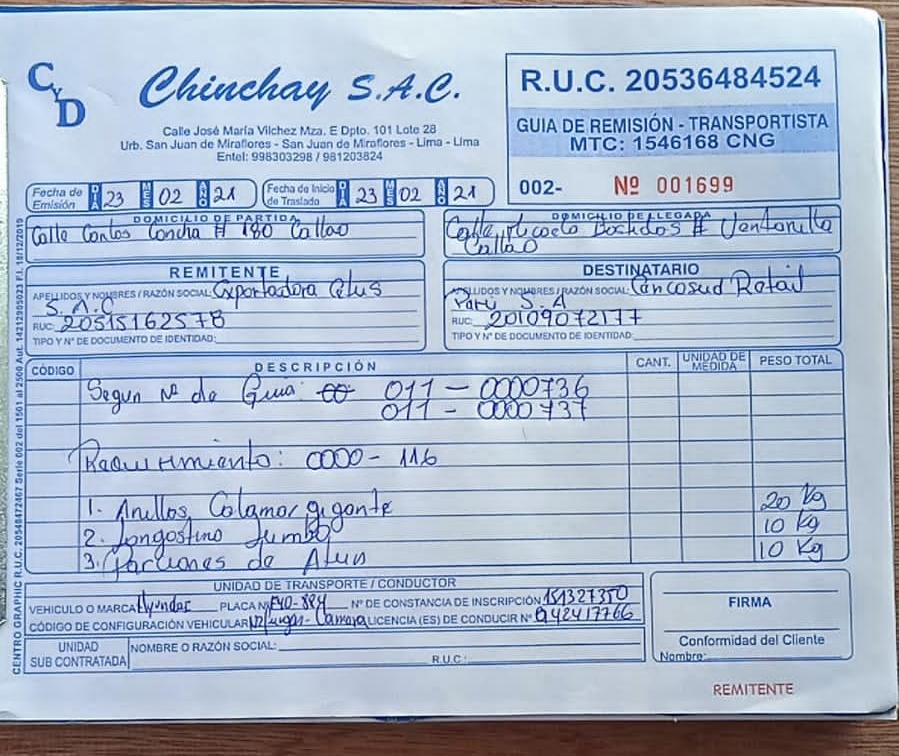 CyD
Chinchay S.A.C.
Calle José María Vilchez Mza. E Dpto. 101 Lote 28
Urb. San Juan de Miraflores - San Juan de Miraflores - Lima - Lima
Entel: 998303298 / 981203824
R.U.C. 20536484524
GUIA DE REMISIÓN - TRANSPORTISTA
MTC: 1546168 CNG
002- Nº 001699
Fecha de Emisión DIA 23 MES 02 AÑO 21
Fecha de Inicio de Traslado DIA 23 MES 02 AÑO 21
DOMICILIO DE PARTIDA
Calle Carlos Concha # 180 Callao
DOMICILIO DE LLEGADA
Calle Bastidas # Ventanilla
Callao
REMITENTE
APELLIDOS Y NOMBRES / RAZÓN SOCIAL: Exportadora
S.A.C
RUC: 20515162578
TIPO Y Nº DE DOCUMENTO DE IDENTIDAD:
DESTINATARIO
APELLIDOS Y NOMBRES / RAZÓN SOCIAL: Cencosud Retail
Perú S.A
RUC: 20109072177
TIPO Y Nº DE DOCUMENTO DE IDENTIDAD:
CÓDIGO DESCRIPCIÓN CANT. UNIDAD DE MEDIDA PESO TOTAL
Segun Nº de Guia: 011 - 0000736
011 - 0000737
Requerimiento: 0000 - 116
1. Anillos Calamar gigante 20 Kg
2. Langostino Jumbo 10 Kg
3. Porciones de Atun 10 Kg
UNIDAD DE TRANSPORTE / CONDUCTOR
VEHICULO O MARCA Hyundai PLACA Nº -884 Nº DE CONSTANCIA DE INSCRIPCIÓN 151327350
CÓDIGO DE CONFIGURACIÓN VEHICULAR LICENCIA (ES) DE CONDUCIR Nº Q42417766
UNIDAD SUB CONTRATADA NOMBRE O RAZÓN SOCIAL:
R.U.C:
FIRMA
Conformidad del Cliente
Nombre:
REMITENTE
CENTRO GRAPHIC R.U.C. 20548472467 Serie 002 del 1501 al 2500 Aut. 14212905023 F.I. 18/12/2019